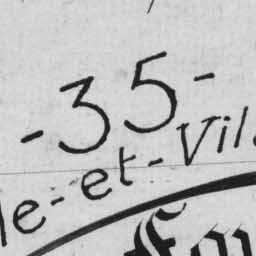 -35-
le-et-Vil